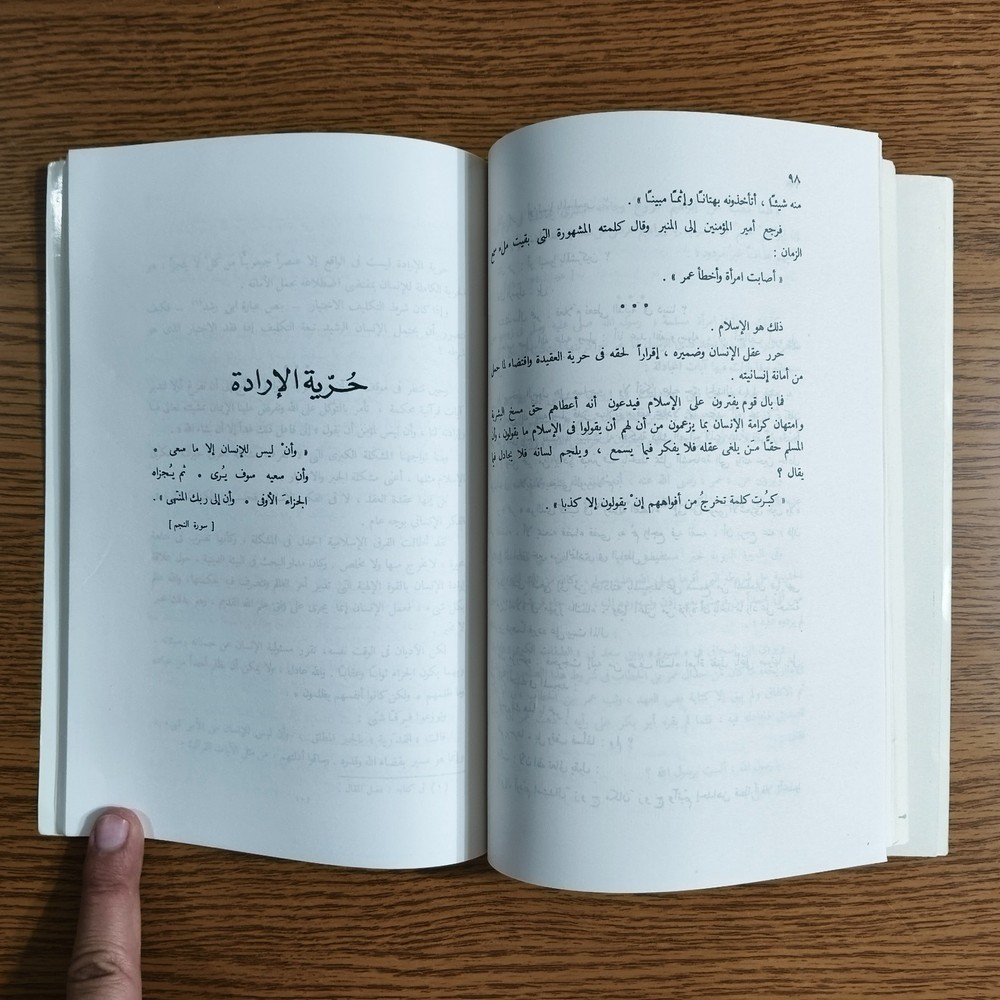 ٩٨
منه شيئاً ، أتأخذونه بهتاناً وإثمًا مبيناً » .
فرجع أمير المؤمنين إلى المنبر وقال كلمته المشهورة التى بقيت ملء سمع
الزمان :
« أصابت امرأة وأخطأ عمر » .
* * *
ذلك هو الإسلام .
حرر عقل الإنسان وضميره ، إقراراً لحقه فى حرية العقيدة واقتضاء لما حمل
من أمانة إنسانيته .
فما بال قوم يفترون على الإسلام فيدعون أنه أعطاهم حق مسخ البشرية
وامتهان كرامة الإنسان بما يزعمون من أن لهم أن يقولوا فى الإسلام ما يقولون ، وأن
المسلم حقًّا مَن يلغى عقله فلا يفكر فيما يسمع ، ويلجم لسانه فلا يجادل فيما
يقال ؟
« كبُرت كلمة تخرجُ من أفواههم إنْ يقولون إلا كذبا » .
حُرّية الإرادة
« وأنْ ليس للإنسان إلا ما سعى *
وأن سعيه سوف يُرى * ثم يُجزاه
الجزاءَ الأوفى * وأن إلى ربك المنتهى » .
[ سورة النجم ]